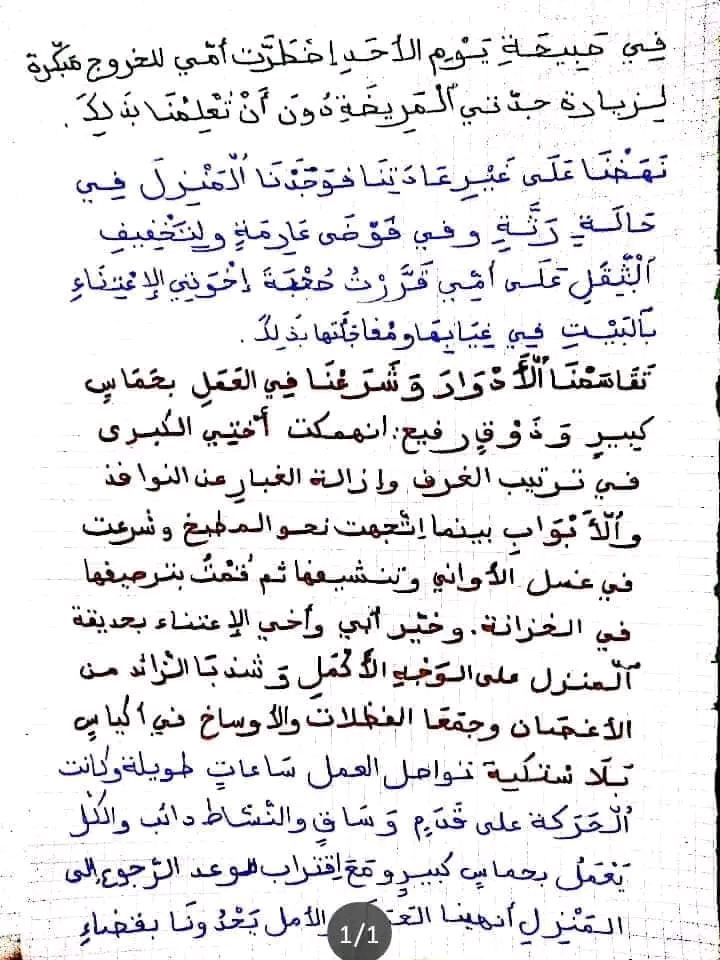 في صَبِيحَةِ يَوْمِ الأحَدِ إضْطَرَّت أمّي للخروج مبَكّرة
لِـزيارة جدّتي ٱلْمَرِيضَةِ دُونَ أَنْ تُعْلِمْنَا بِذَلِكَ.
نَهَضْنَا عَلَى غَيْرِ عَادَتِنَا فَوَجَدْنَا ٱلْمَنْزِلَ فِي
حَالَـةٍ رَثَّةٍ وفي فَوْضَى عَارِمَةٍ ولِتَخْفِيفِ
ٱلْثِّقَلِ عَلَى أمّي قَرَّرْتُ صُحْبَةَ إخْوَتِي الإعْتِنَاءِ
بٱلبَيْتِ فِي غِيَابِهَا ومُفَاجَأَتها بذَلِكَ.
تَقَاسَمْنَا ٱلْأَدْوَارَ وَشَرَعْنَا فِي العَمَلِ بِحَمَاسٍ
كَبِيرٍ وَذَوْقٍ رفيع: انهمكت أخْتِي الكبرى
في ترتيب الغرف وإزالة الغبارِ عن النوافذ
وٱلْأَبْوَابِ بينما إتّجهت نحو المطبخ وشرعت
في غسل الأواني وتنشيفها ثم قُمْتُ بترصيفها
في الخزانة. وخيّر أبي وأخي الإعتناء بحديقة
ٱلْمنزل على الوَجْهِ الأكْمَلِ وَشذبَا الزّائد من
الأغصان وجمَعَا الفظلات والأوساخ في أكياسٍ
بَلَاسْتكية تواصل العمل سَاعاتٍ طويلة وكانت
ٱلْحَرَكة على قَدَمٍ وَسَاقٍ والنّشاط دائب والكل
يَعْمَلُ بحماسٍ كبيرٍ ومَعَ إقتراب موعد الرّجوع إلى
المَنْزِلِ أنهينا والأمل يَحْدُونَا بقضاءِ
1/1